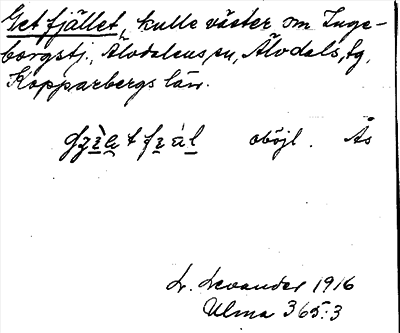 Getfjället, kulle väster om Inge-
borgstj., Älvdalens sn, Älvdals, fg,
Kopparbergs län.
oböjl. Ås
L. Levander 1916
Ulma 365:3